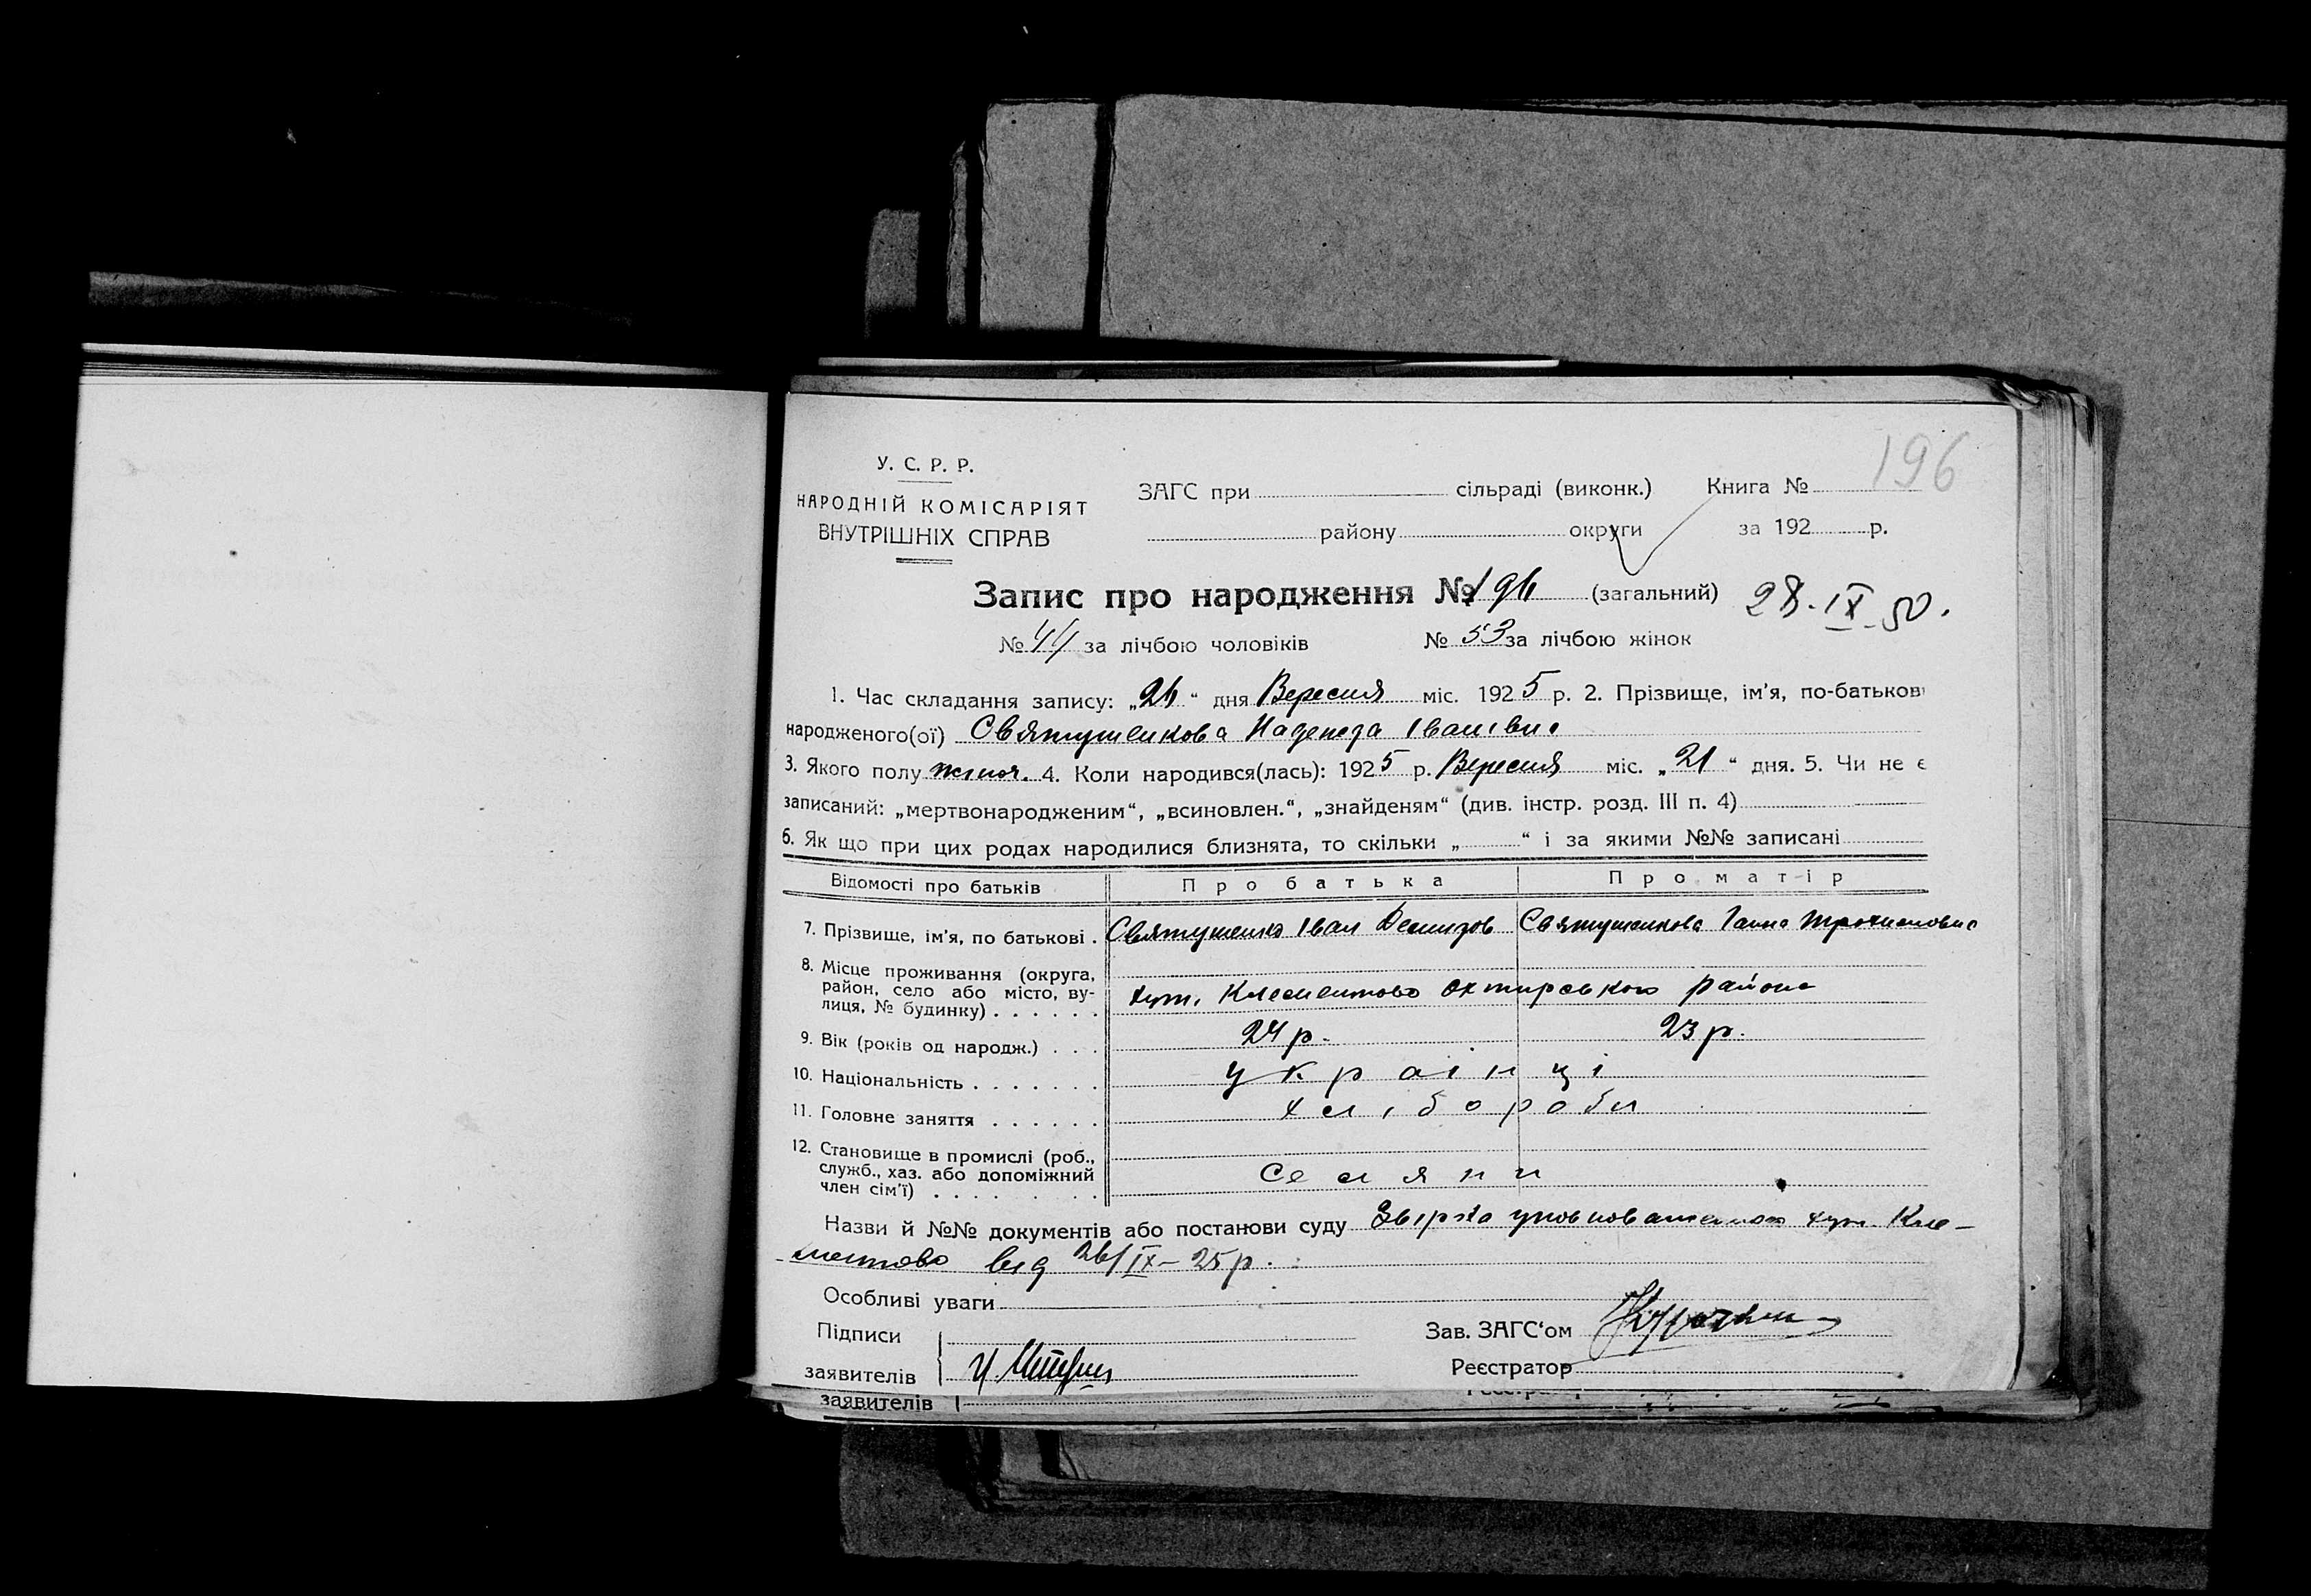 196
У. С. Р. Р.
НАРОДНІЙ КОМІСАРІЯТ
ВНУТРІШНІХ СПРАВ
ЗАГС при сільраді (виконк.) Книга №
району округи за 192 р.
Запис про народження № 196 (загальний) 28. IX 50.
№ 44 за лічбою чоловіків № 53 за лічбою жінок
1. Час складання запису: „26“ дня Вересня міс. 1925 р. 2. Прізвище, ім'я, по-батькові
народженого(ої) Святушенкова Надежда Іванівна
3. Якого полу жіноч. 4. Коли народився(лась): 1925 р. Вересня міс. „21“ дня. 5. Чи не є
записаний: „мертвонародженим“, „всиновлен.“, „знайденям“ (див. інстр. розд. III п. 4)
6. Як що при цих родах народилися близнята, то скільки „ “ і за якими №№ записані
Відомості про батьків Про батька Про матір
7. Прізвище, ім'я, по батькові . Святушенко Іван Демидов Святушенкова Ганна Трохимовна
8. Місце проживання (округа,
район, село або місто, ву-
лиця, № будинку) . . . . . . хут. Клементово Охтирського района
9. Вік (років од народж.) . . . 24 р. 23 р.
10. Національність . . . . . . . українці
11. Головне заняття . . . . . . хлібороби
12. Становище в промислі (роб.,
служб., хаз. або допоміжний
член сім'ї) . . . . . . . . селяни
Назви й №№ документів або постанови суду Звірка уповноваженого хут. Кле-
ментово від 26/IX-25 р.
Особливі уваги
Підписи
заявителів
Зав. ЗАГС‘ом
Реєстратор
заявителів